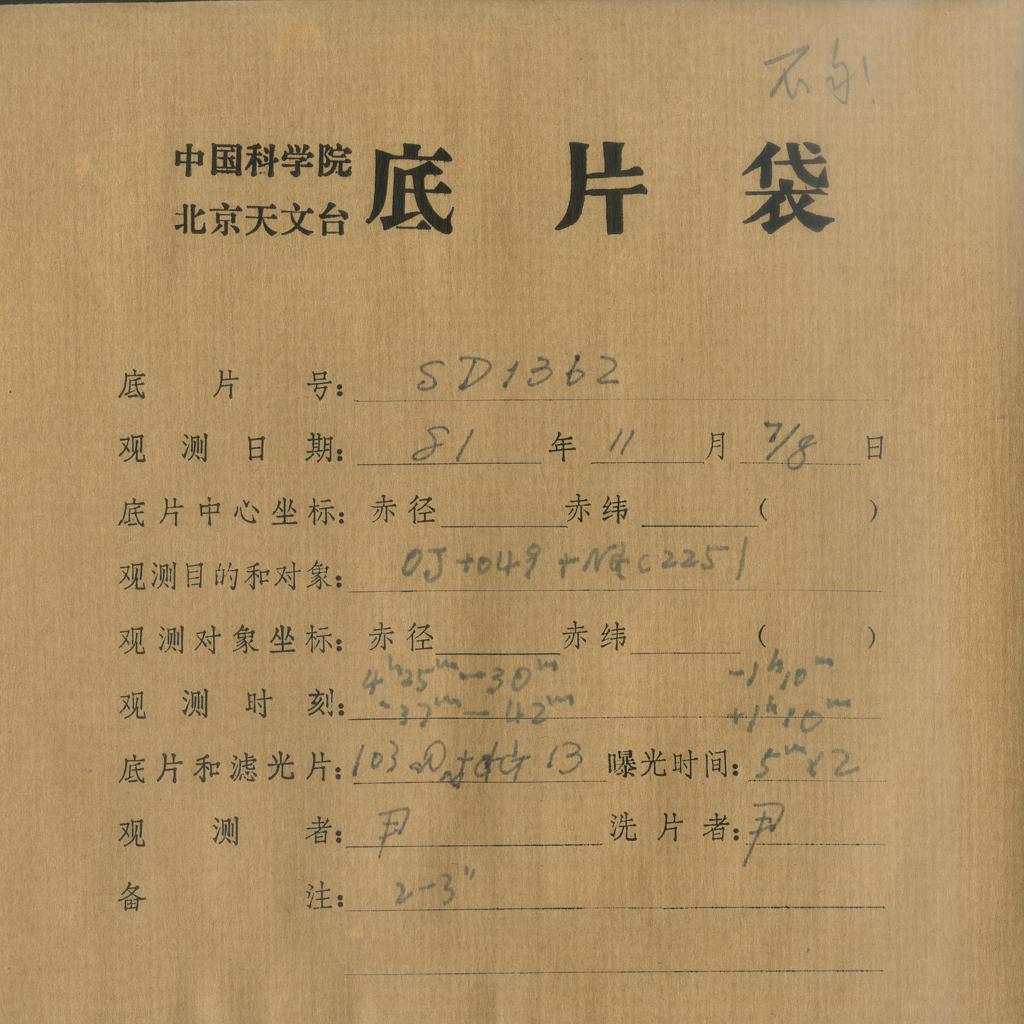 中国科学院
北京天文台
底片袋
底片号: SD1362
观测日期: 81年11月7/8日
底片中心坐标: 赤径 赤纬 ( )
观测目的和对象: OJ+049+NGC2251
观测对象坐标: 赤径 赤纬 ( )
4ʰ25ᵐ—30ᵐ -1ʰ10ᵐ
观测时刻: -37ᵐ—42ᵐ +1ʰ10ᵐ
底片和滤光片: 103aD 13 曝光时间: 5ᵐx2
观测者: 尹 洗片者: 尹
备注: 2-3"